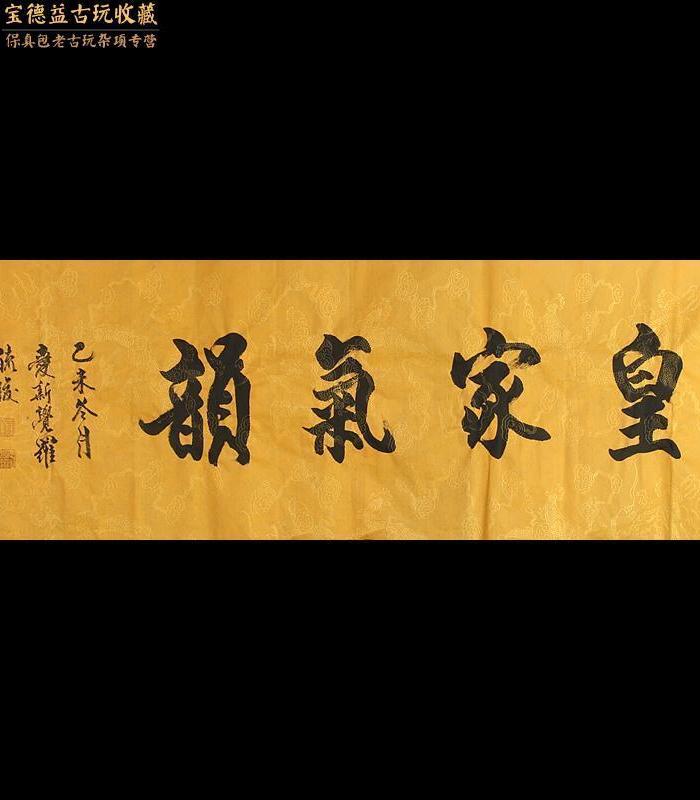 宝德益古玩收藏
保真包老古玩杂项专营
皇家氣韻
己未冬月
愛新覺羅